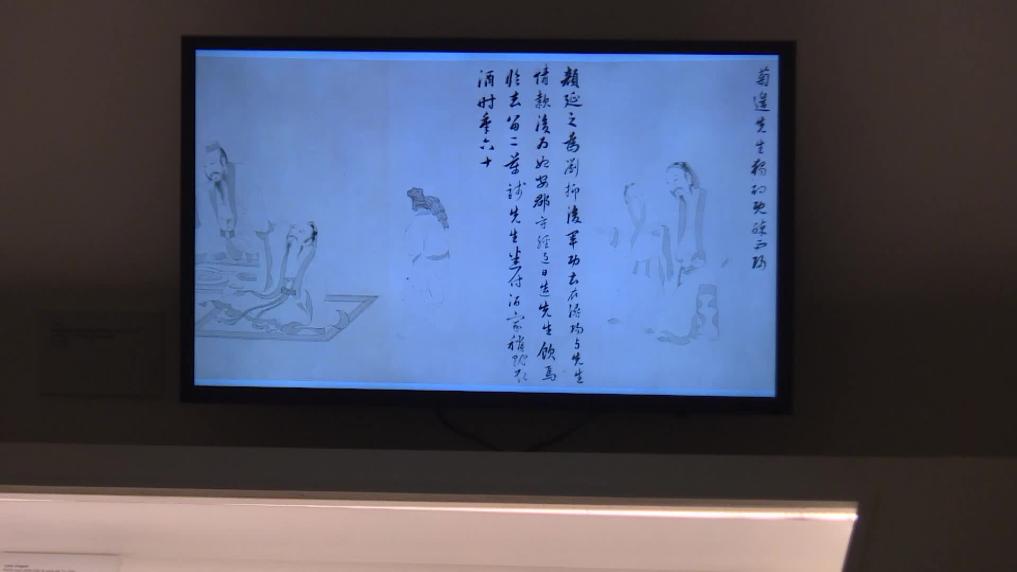 菊邊先生
顏延之為劉柳後軍功曹在潯陽與先生
情款後為始安郡守經過日造先生飲焉
臨去留二萬錢先生悉付酒家稍就取
酒時年六十